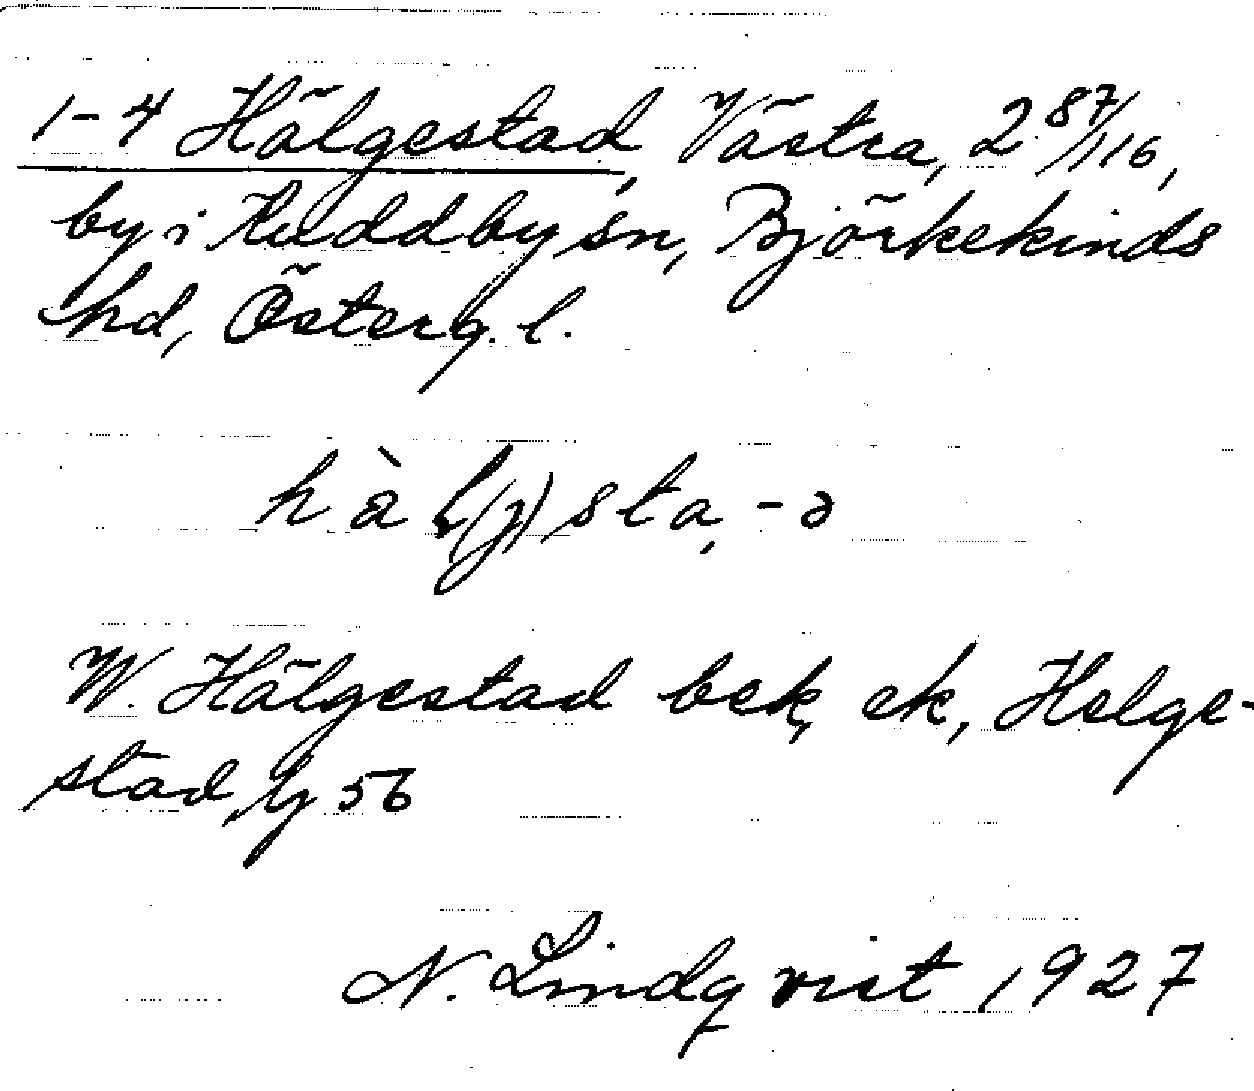 1-4 Hälgestad, Västra, 2 87/116,
by i Ruddby sn, Björkekinds
hd, Österg. l.
hàl(j)sta, -ə
W. Hälgestad bek, ek, Helge-
stad, lj 56
N. Lindqvist 1927